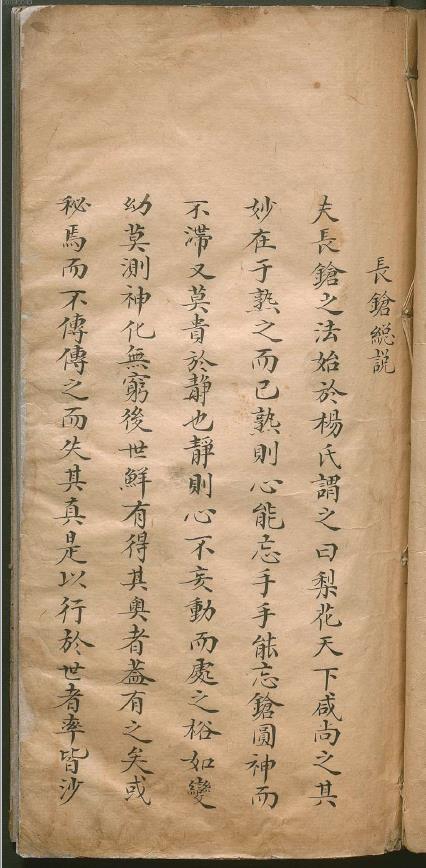 長鎗總説
夫長鎗之法始於楊氏謂之曰梨花天下咸尚之其
妙在于熟之而已熟則心能忘手手能忘鎗圓神而
不滯又莫貴於静也靜則心不妄動而處之裕如變
幼莫測神化無窮後世鮮有得其奥者葢有之矣或
秘焉而不傳傳之而失其真是以行於世者率皆沙